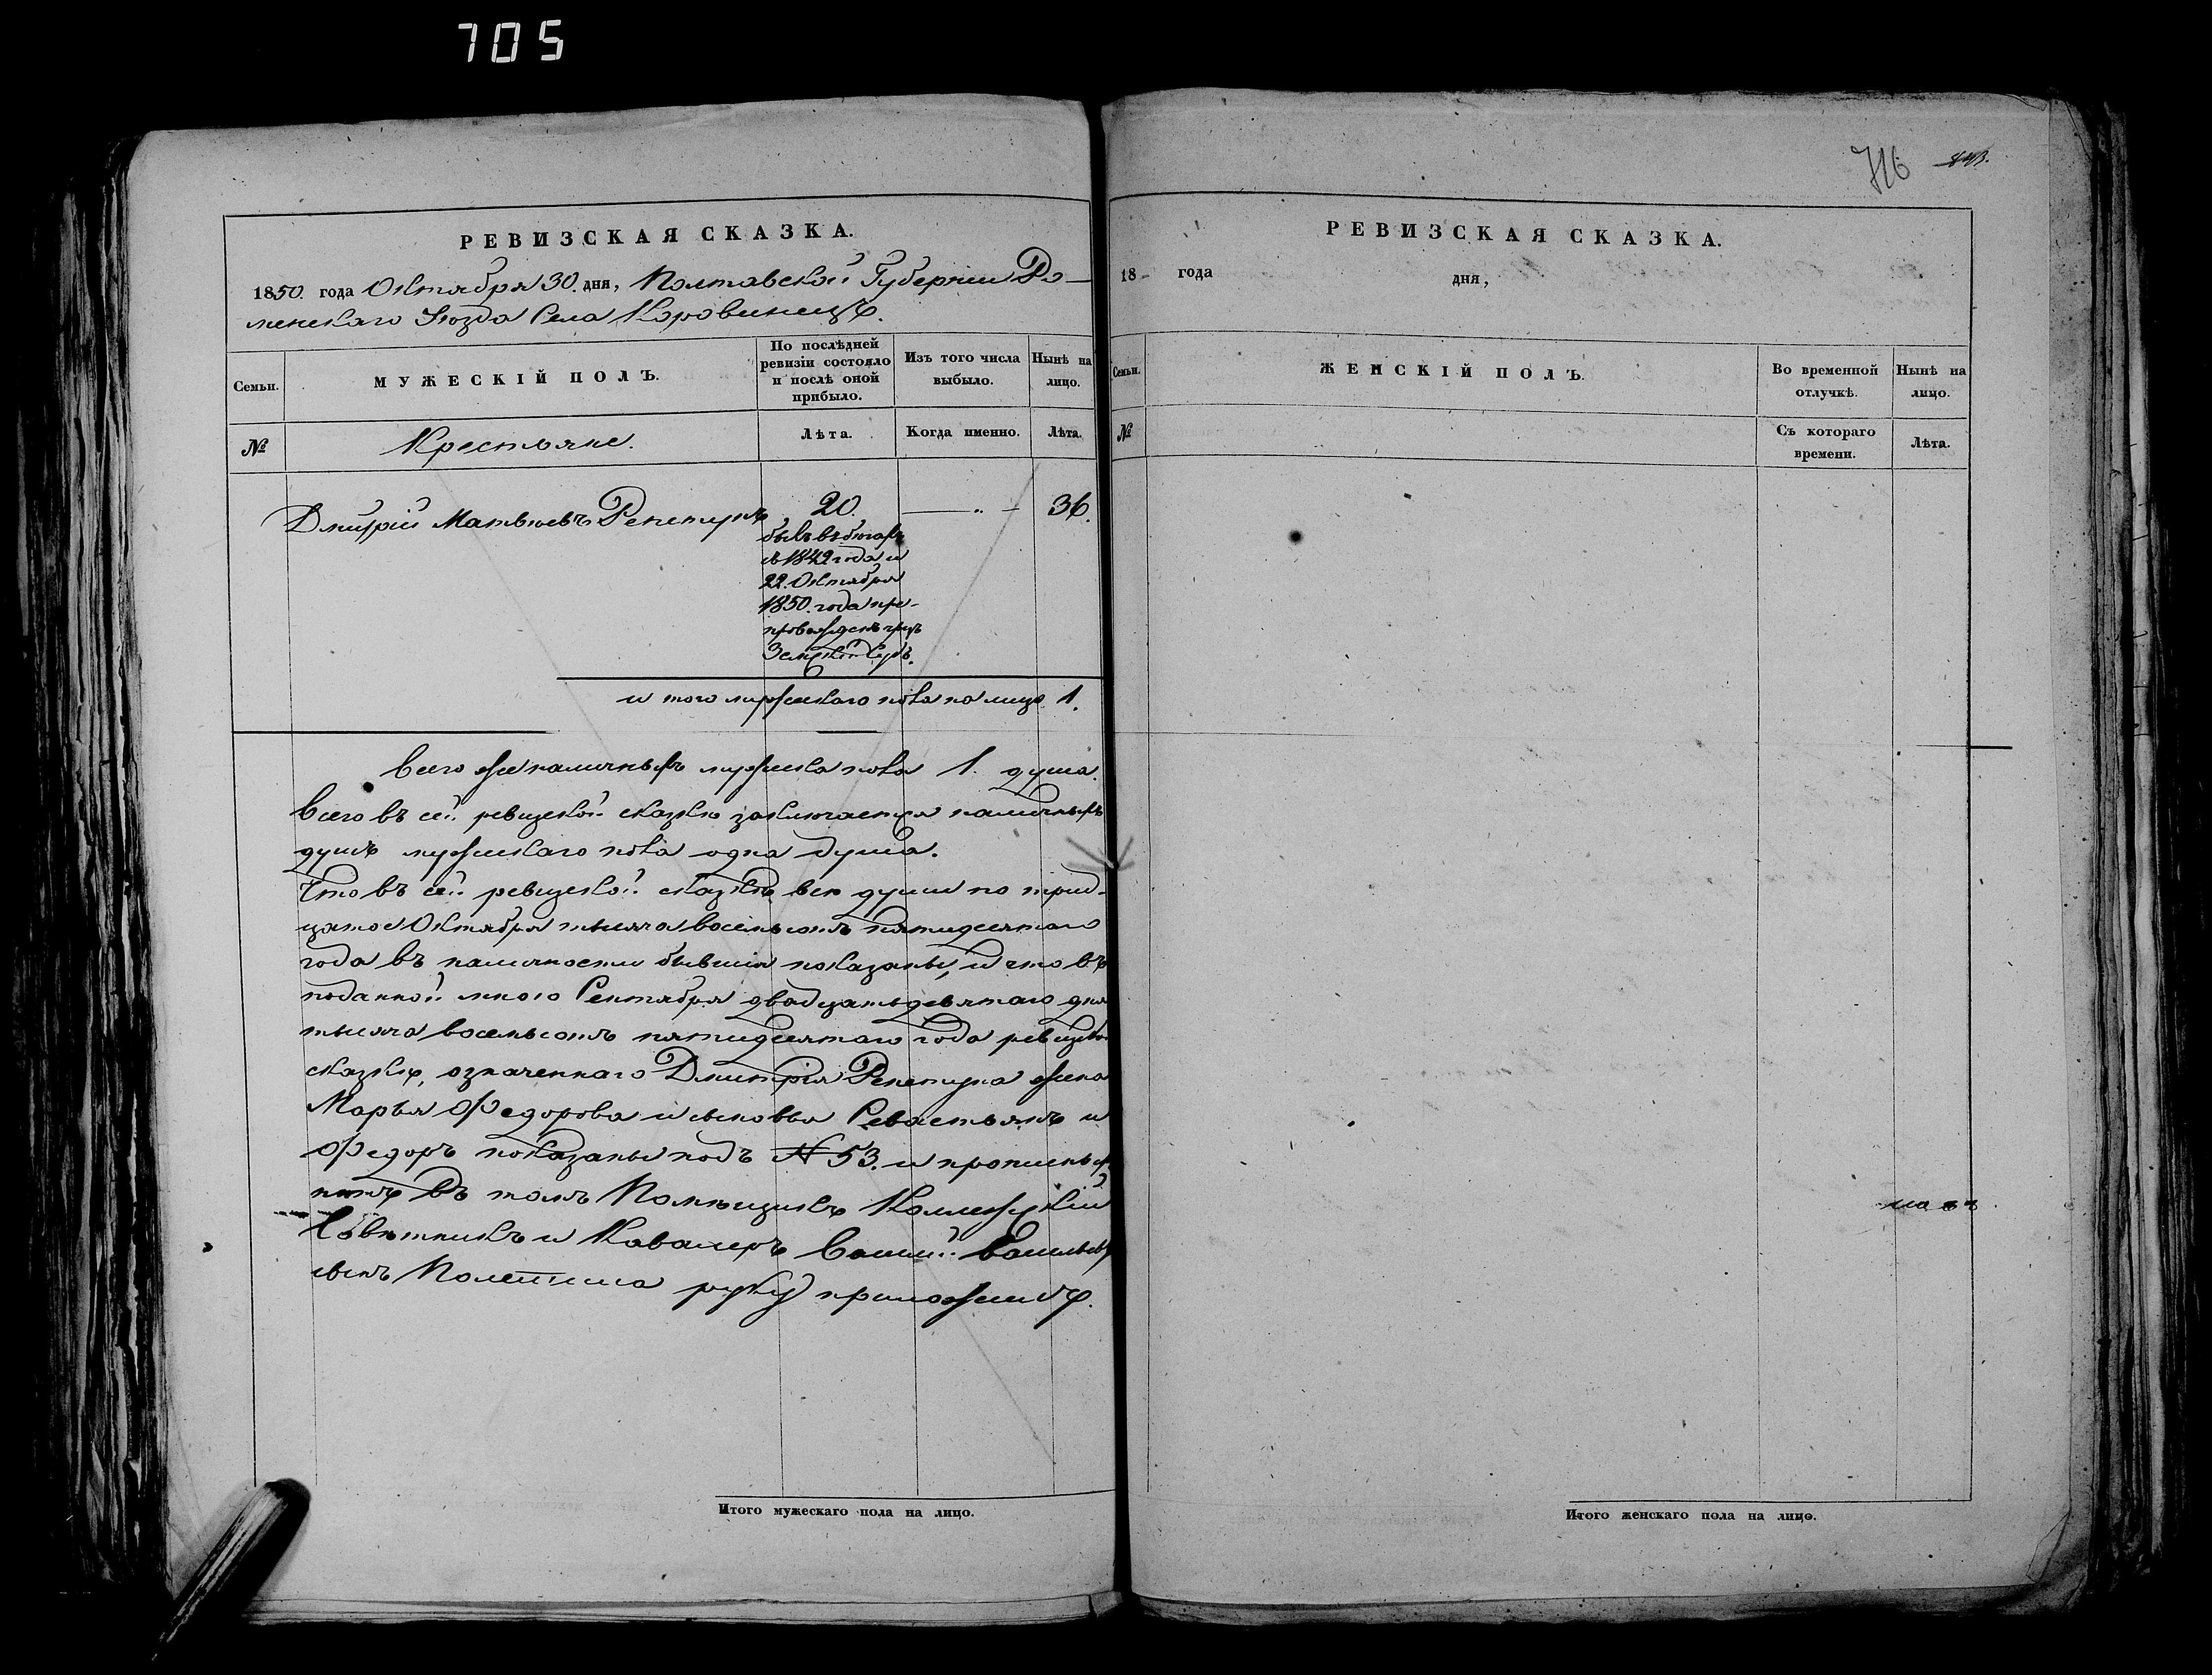 705
716
РЕВИЗСКАЯ СКАЗКА.
1850. года Октября 30. дня, Полтавской Губерніи Ро-
менскаго Уѣзда Села Коровинецъ.
Семьи.
МУЖЕСКІЙ ПОЛЪ.
По послѣдней
ревизіи состояло
и послѣ оной
прибыло.
Изъ того числа
выбыло.
Нынѣ на
лицо.
№
Крестьяне.
Лѣта.
Когда именно.
Лѣта.
Дмитрій Матвѣевъ Репетунъ
20.
36.
былъ въ бѣгахъ
съ 1842 года и
22. Октября
1850. года пре-
провожденъ чрезъ
Земскій Судъ.
и того мужескаго пола на лицо 1.
Всего же наличныхъ мужеска пола 1. душа.
Всего въ сей ревизской сказкѣ заключается наличныхъ
душъ мужескаго пола одна душа.
Что въ сей ревизской сказкѣ всѣ души по трид-
цатое Октября тысяча восемьсотъ пятидесятаго
года въ наличности бывшія показаны, и что въ
поданной мною Сентября двадцатьдевятаго дня
тысяча восемьсотъ пятидесятаго года ревизской
сказкѣ, означеннаго Дмитрія Репетуна жена
Марья Федорова и сыновья Севастьянъ и
Федоръ показаны подъ № 53. и прописныхъ
нѣтъ въ томъ Помѣщикъ Коллежскій
Совѣтникъ и Кавалеръ Василій Васильевъ
сынъ Полетика руку приложилъ.
Итого мужескаго пола на лицо.
РЕВИЗСКАЯ СКАЗКА.
18 года дня,
Семьи.
ЖЕНСКІЙ ПОЛЪ.
Во временной
отлучкѣ.
Нынѣ на
лицо.
№
Съ котораго
времени.
Лѣта.
Итого женскаго пола на лицо.